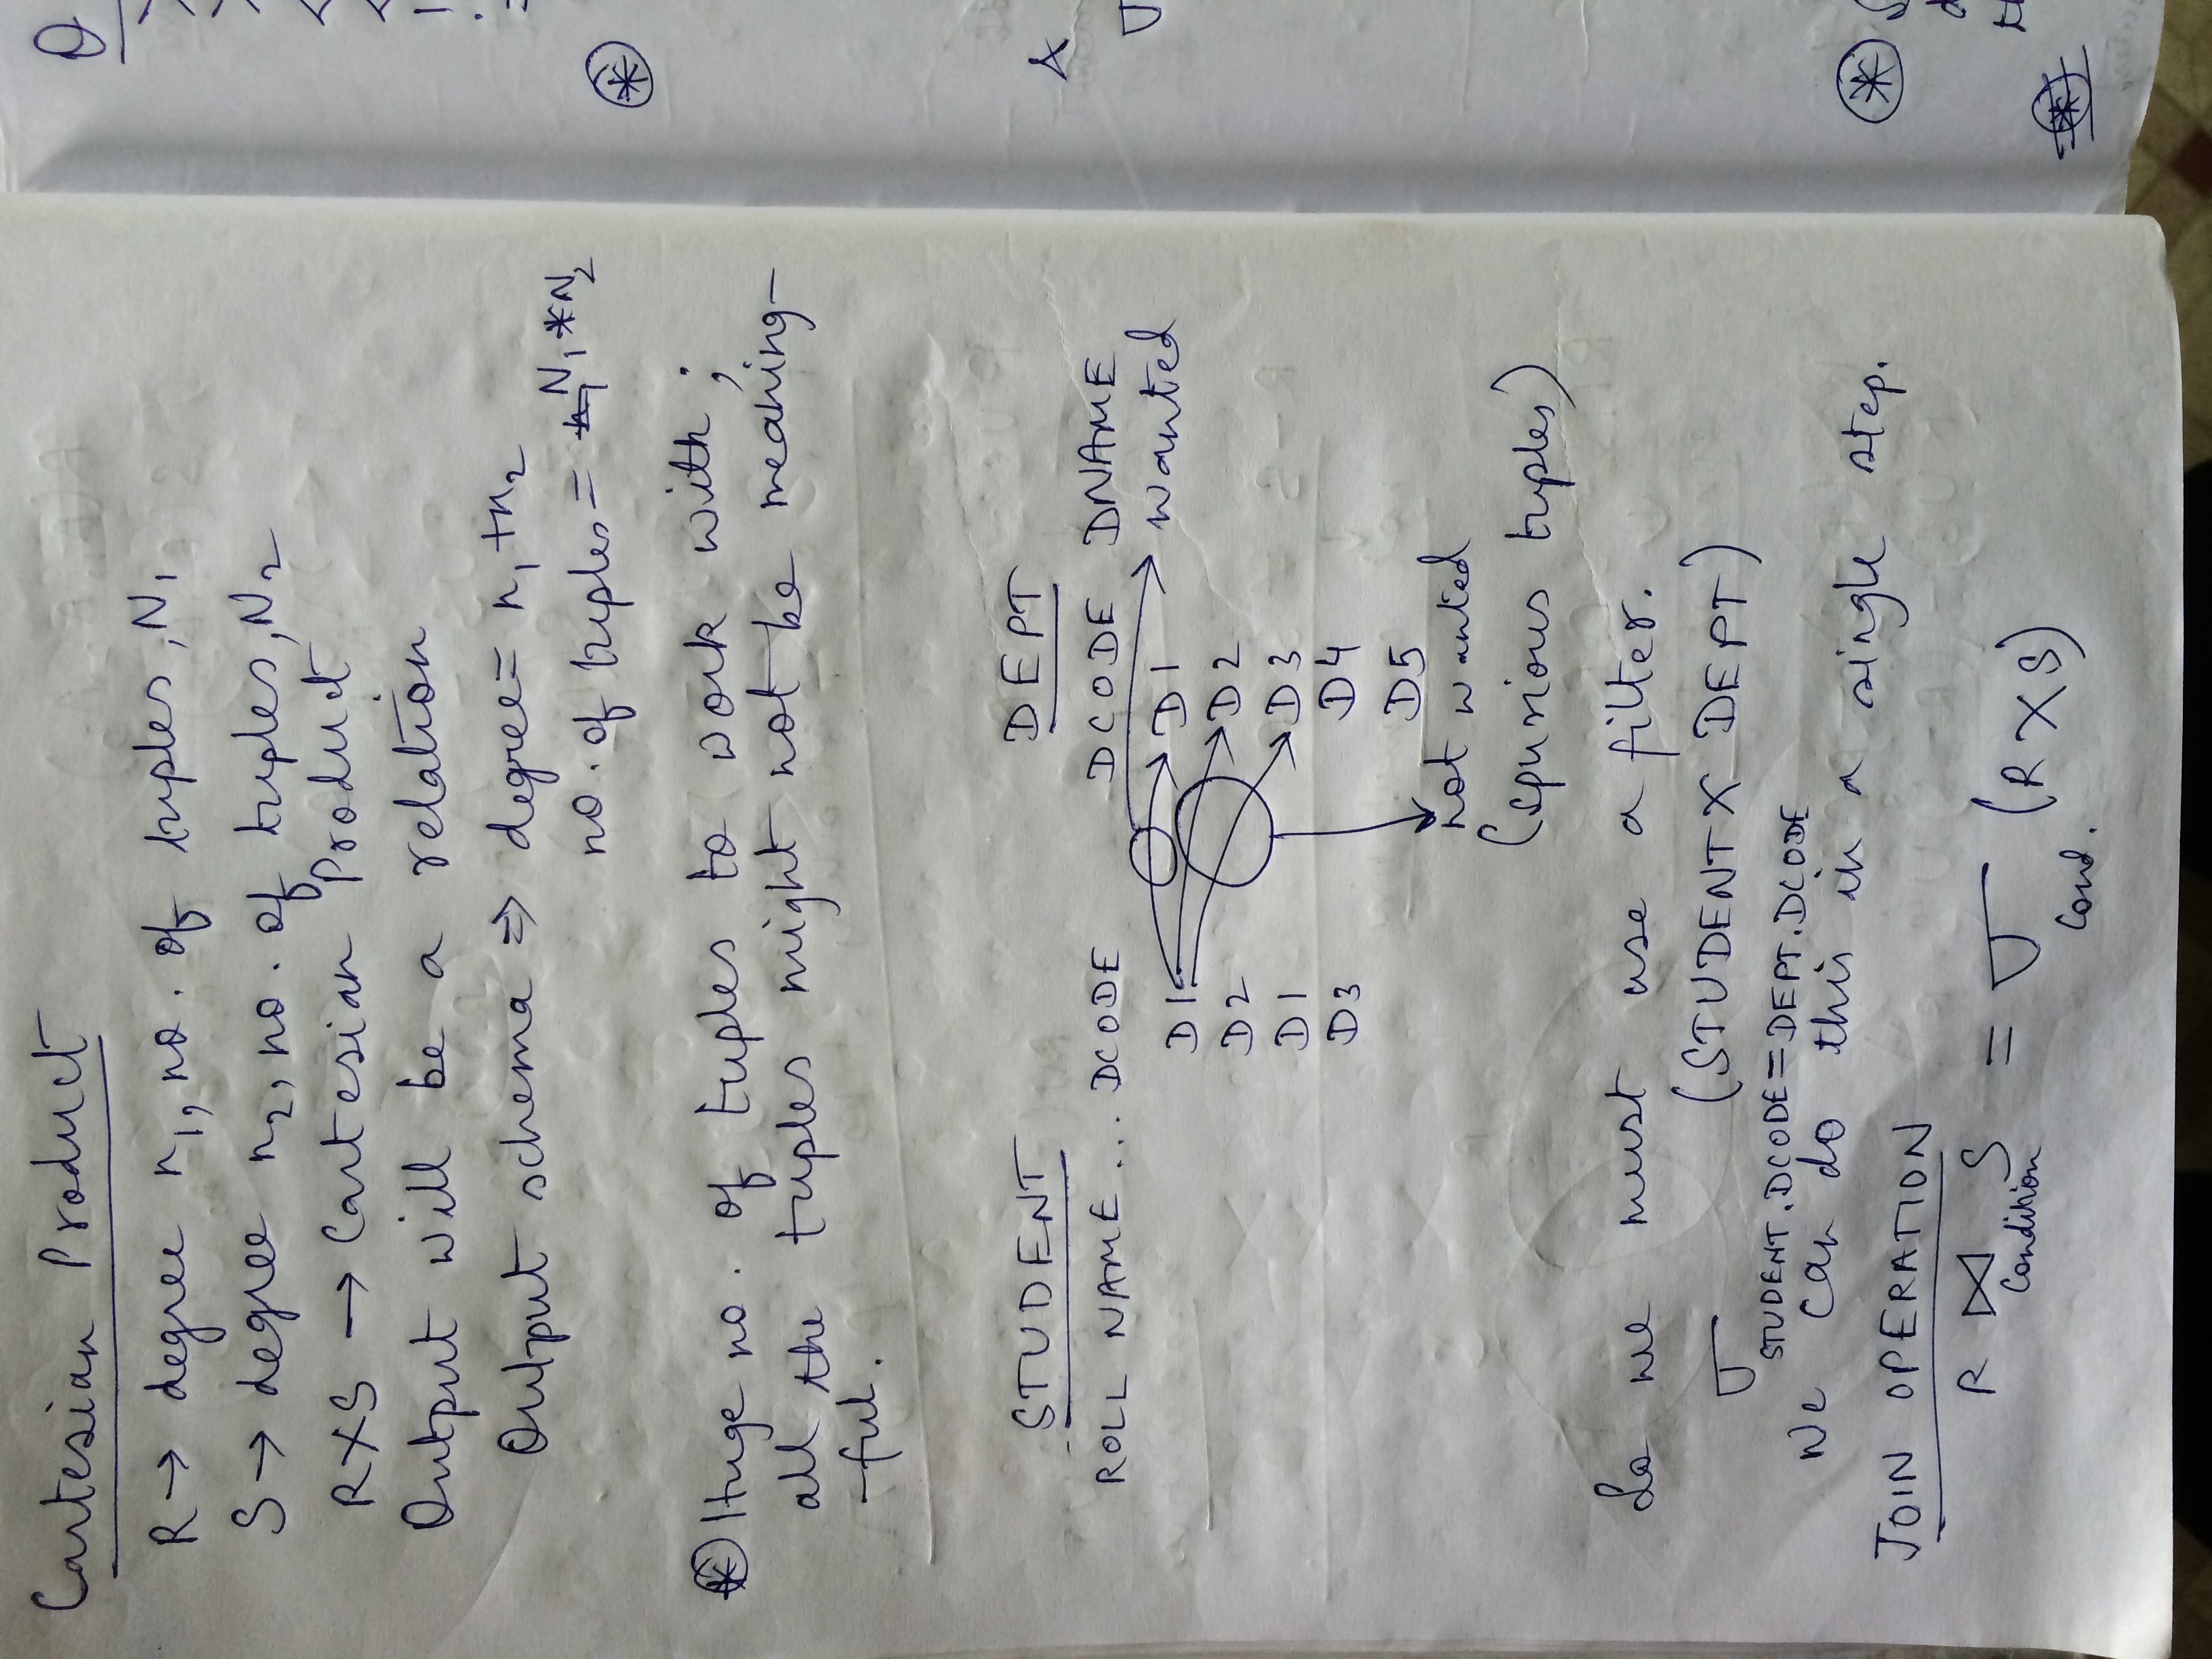 Cartesian Product
R → degree n₁, no. of tuples, N₁
S → degree n₂, no. of tuples, N₂
R X S → Cartesian Product
Output will be a relation
Output schema ⇒ degree = n₁ + n₂
no. of tuples = N₁ * N₂
⊛ Huge no. of tuples to work with;
all the tuples might not be meaning-
-ful.
STUDENT DEPT
ROLL NAME ... DCODE DCODE DNAME
D1 D1 wanted
D2 D2
D1 D3
D3 D4
D5
not wanted
(spurious tuples)
So we must use a filter.
σ (STUDENT X DEPT)
STUDENT.DCODE = DEPT.DCODE
We can do this in a single step.
JOIN OPERATION
R ⋈ S = σ (R X S)
Condition Cond.